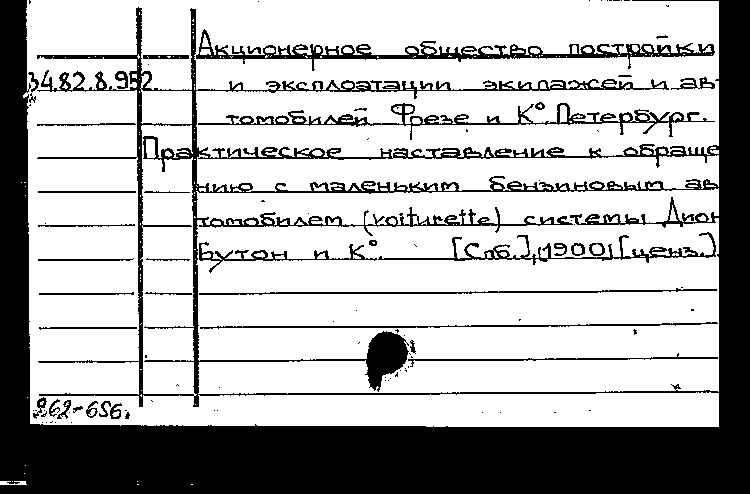 Акционерное общество постройки
34.82.8.952. и эксплоатации экипажей и ав-
томобилей Фрезе и К°. Петербург.
Практическое наставление к обраще
нию с маленьким бензиновым ав
томобилем (voiturette) системы Дион
Бутон и К°. [Спб.], (1900) [ценз.]
862-656.